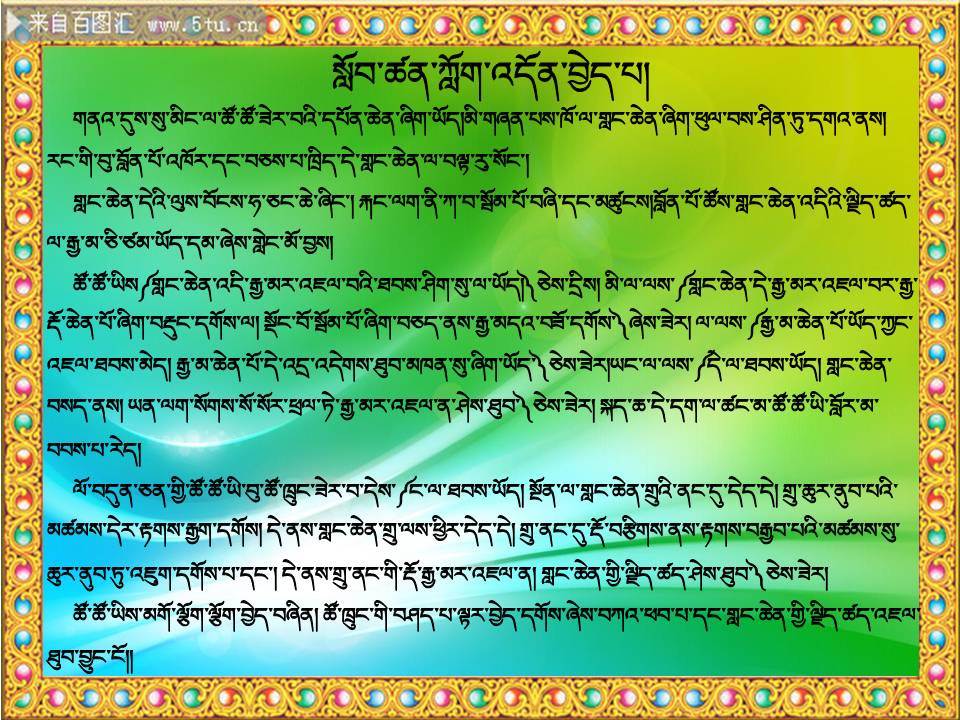 来自百图汇 www.5tu.cn
སློབ་ཚན་ཀློག་འདོན་བྱེད་པ།
གནའ་དུས་སུ་མིང་ལ་ཚོ་ཚོ་ཟེར་བའི་དཔོན་ཆེན་ཞིག་ཡོད།མི་གཞན་པས་ཁོ་ལ་གླང་ཆེན་ཞིག་ཕུལ་བས་ཤིན་ཏུ་དགའ་ནས།
རང་གི་བུ་བློན་པོ་འཁོར་དང་བཅས་པ་ཁྲིད་དེ་གླང་ཆེན་ལ་བལྟ་རུ་སོང་།
གླང་ཆེན་དེའི་ལུས་བོངས་ཧ་ཅང་ཆེ་ཞིང་། རྐང་ལག་ནི་ཀ་བ་སྦོམ་པོ་བཞི་དང་མཚུངས།བློན་པོ་ཚོས་གླང་ཆེན་འདིའི་ལྗིད་ཚད་
ལ་རྒྱ་མ་ཅི་ཙམ་ཡོད་དམ་ཞེས་གླེང་མོ་བྱས།
ཚོ་ཚོ་ཡིས་༼གླང་ཆེན་འདི་རྒྱ་མར་འཇལ་བའི་ཐབས་ཤིག་སུ་ལ་ཡོད།༽ ཅེས་དྲིས། མི་ལ་ལས་༼གླང་ཆེན་དེ་རྒྱ་མར་འཇལ་བར་རྒྱ་
རྡོ་ཆེན་པོ་ཞིག་བརྡུང་དགོས་ལ། སྡོང་བོ་སྦོམ་པོ་ཞིག་བཅད་ནས་རྒྱ་མདའ་བཟོ་དགོས༽ ཞེས་ཟེར། ལ་ལས་༼རྒྱ་མ་ཆེན་པོ་ཡོད་ཀྱང་
འཇལ་ཐབས་མེད། རྒྱ་མ་ཆེན་པོ་དེ་འདྲ་འདེགས་ཐུབ་མཁན་སུ་ཞིག་ཡོད༽ ཅེས་ཟེར།ཡང་ལ་ལས་༼ངོ་ལ་ཐབས་ཡོད། གླང་ཆེན་
བསད་ནས། ཡན་ལག་སོགས་སོ་སོར་ཕྲལ་ཏེ་རྒྱ་མར་འཇལ་ན་ཤེས་ཐུབ༽ ཅེས་ཟེར། སྐད་ཆ་དེ་དག་ལ་ཚང་མ་ཚོ་ཚོ་ཡི་བློར་མ་
བབས་པ་རེད།
ལོ་བདུན་ཅན་གྱི་ཚོ་ཚོ་ཡི་བུ་ཚོ་ཁྲུང་ཟེར་བ་དེས་༼ང་ལ་ཐབས་ཡོད། སྔོན་ལ་གླང་ཆེན་གྲུའི་ནང་དུ་དེད་དེ། གྲུ་ཆུར་ནུབ་པའི་
མཚམས་དེར་རྟགས་རྒྱག་དགོས། དེ་ནས་གླང་ཆེན་གྲུ་ལས་ཕྱིར་དེད་དེ། གྲུ་ནང་དུ་རྡོ་བརྩིགས་ནས་རྟགས་བརྒྱབ་པའི་མཚམས་སུ་
ཆུར་ནུབ་ཏུ་འཇུག་དགོས་པ་དང་། དེ་ནས་གྲུ་ནང་གི་རྡོ་རྒྱ་མར་འཇལ་ན། གླང་ཆེན་གྱི་ལྗིད་ཚད་ཤེས་ཐུབ༽ ཅེས་ཟེར།
ཚོ་ཚོ་ཡིས་མགོ་ལྕོག་ལྕོག་བྱེད་བཞིན། ཚོ་ཁྲུང་གི་བཤད་པ་ལྟར་བྱེད་དགོས་ཞེས་བཀའ་ཕབ་པ་དང་གླང་ཆེན་གྱི་ལྗིད་ཚད་འཇལ་
ཐུབ་བྱུང་ངོ།།